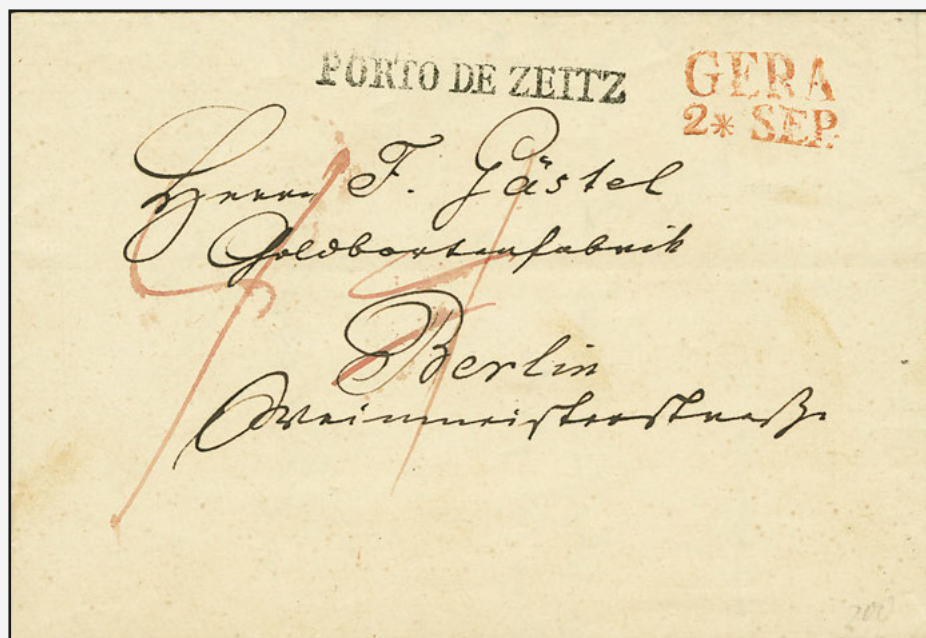 PORTO DE ZEITZ
GERA
2* SEP.
Herrn F. Gästel
Goldbortenfabrik
Berlin
Weinmeisterstraße